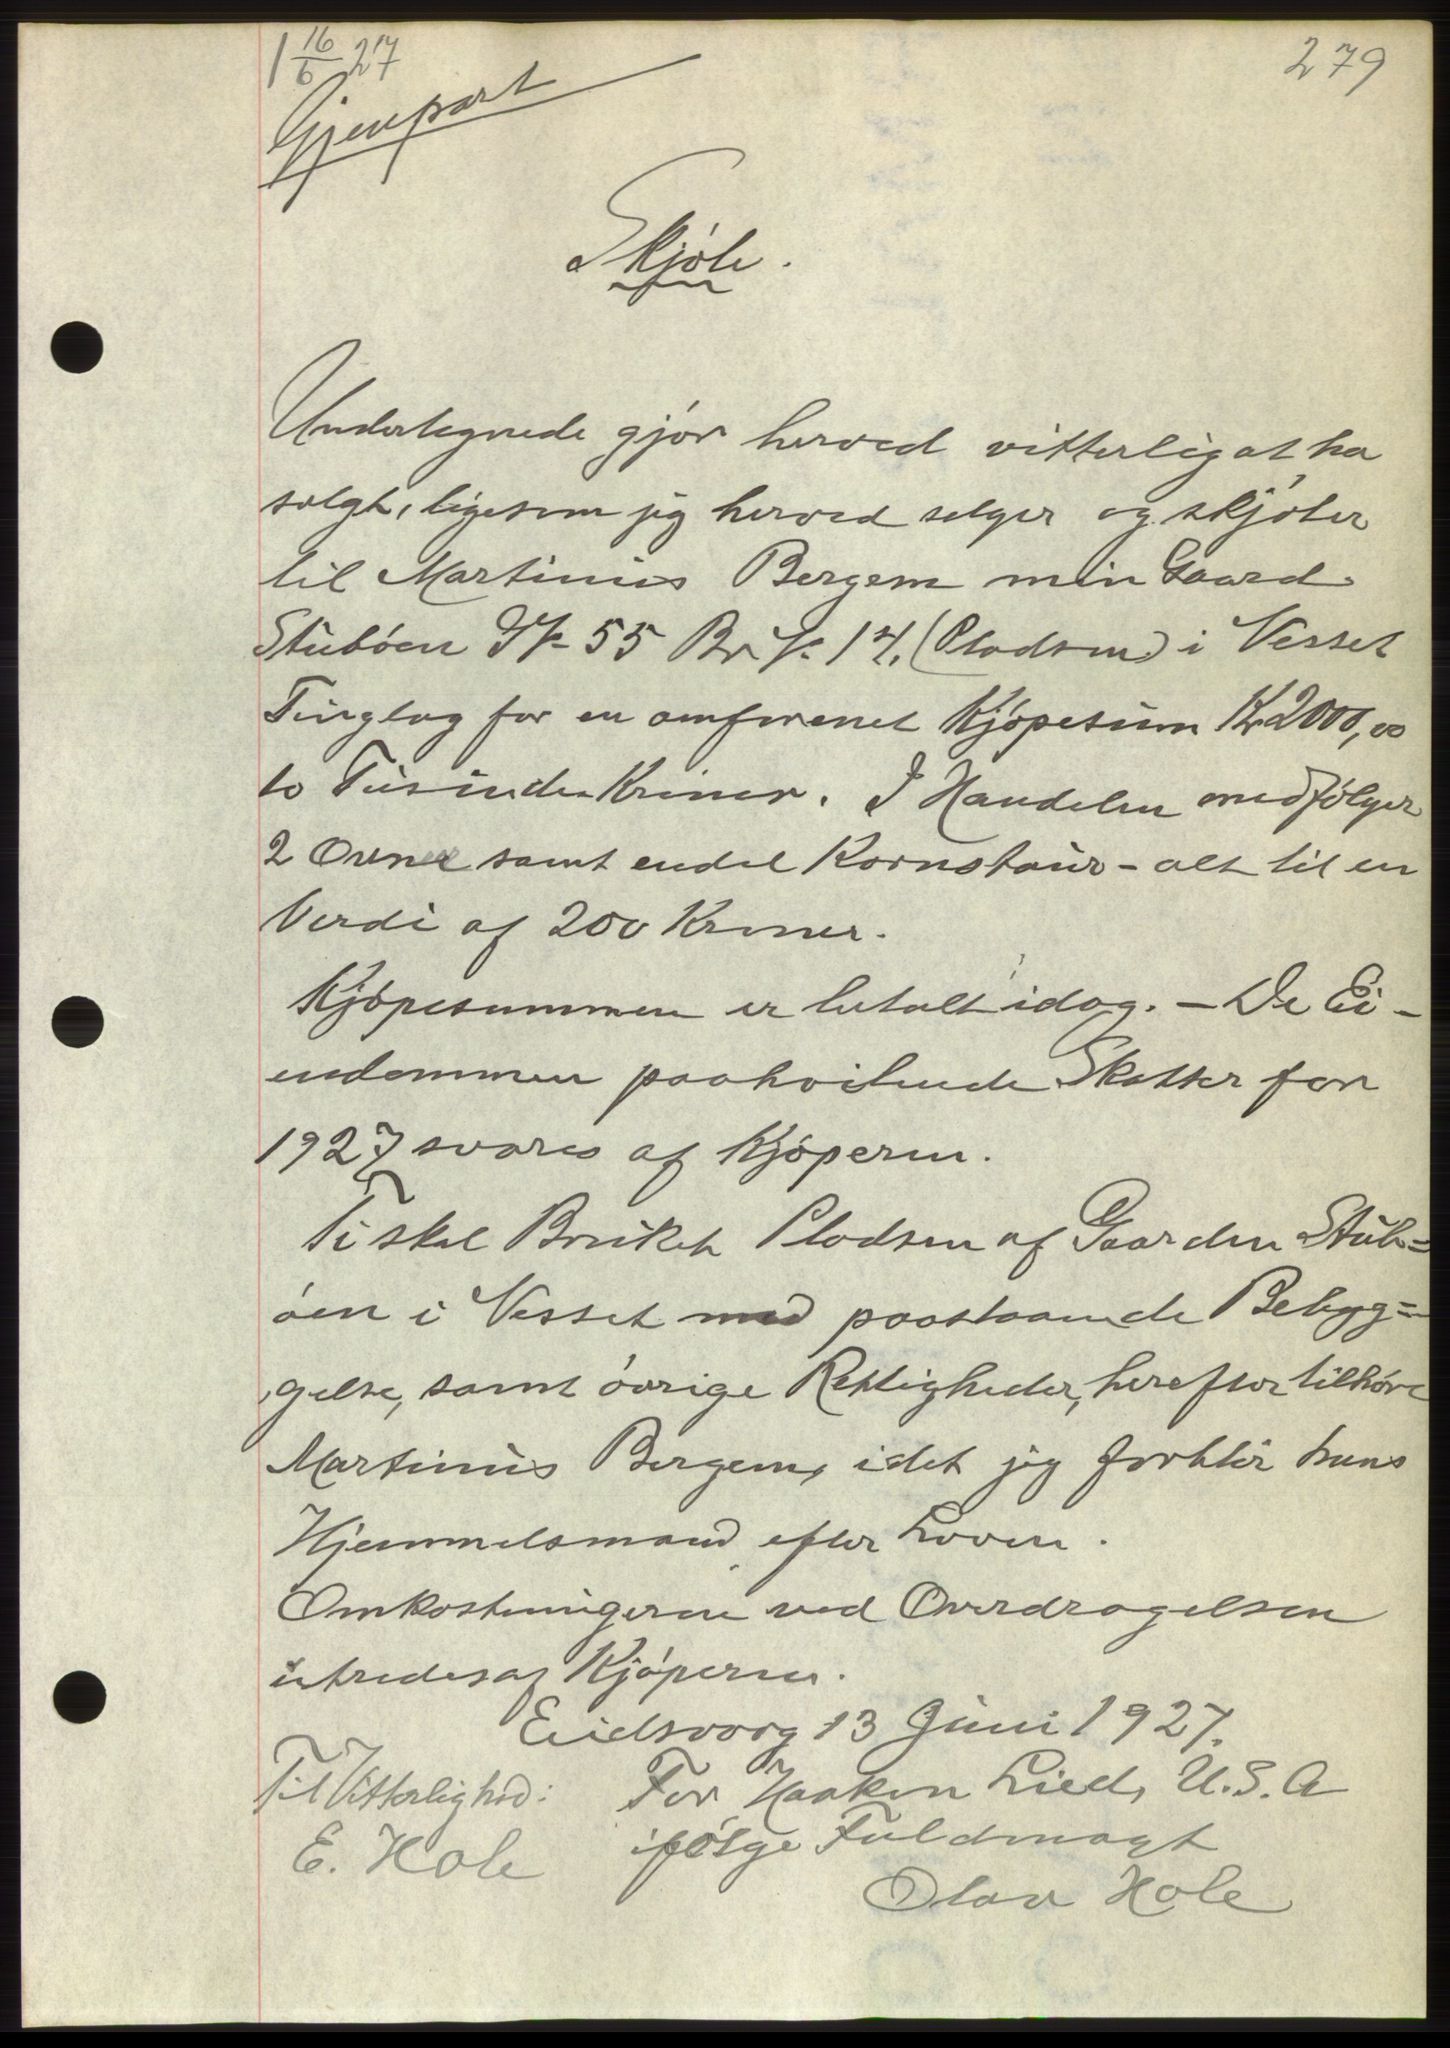 1 16/6 27
279
Gjenpart
Skjöte.
Undertegnede gjör herved vitterlig at ha
solgt, ligesom jeg herved selger og skjöter
til Martinius Bergem min Gaard
Stuböen G N- 55 Br. N. 14, (Pladsen) i Vesset
Tinglag for en omforenet Kjöpesum Kr 2000,00
to Tusinde Kroner. I Handelen medfölger
2 Ovner samt endel Kornstaur - alt til en
Verdi af 200 Kroner.
Kjöpesummen er betalt idag. - De Ei-
endommen paahvilende Skatter for
1927 svares af Kjöperen.
Ti skal Bruket Pladsen af Gaarden Stub=
öen i Vesset med paastaaende Bebyg=
gelse, samt övrige Rettigheder, herefter tilhöre
Martinius Bergem, idet jeg forblir hans
Hjemmelsmand efter Loven.
Omkostningerne ved Overdragelsen
utredes af Kjöperen.
Eidsvaag 13 Juni 1927.
Til Vitterlighed: For Haakon Lied, U.S.A
ifölge Fuldmagt
E. Hole
Olav Hole